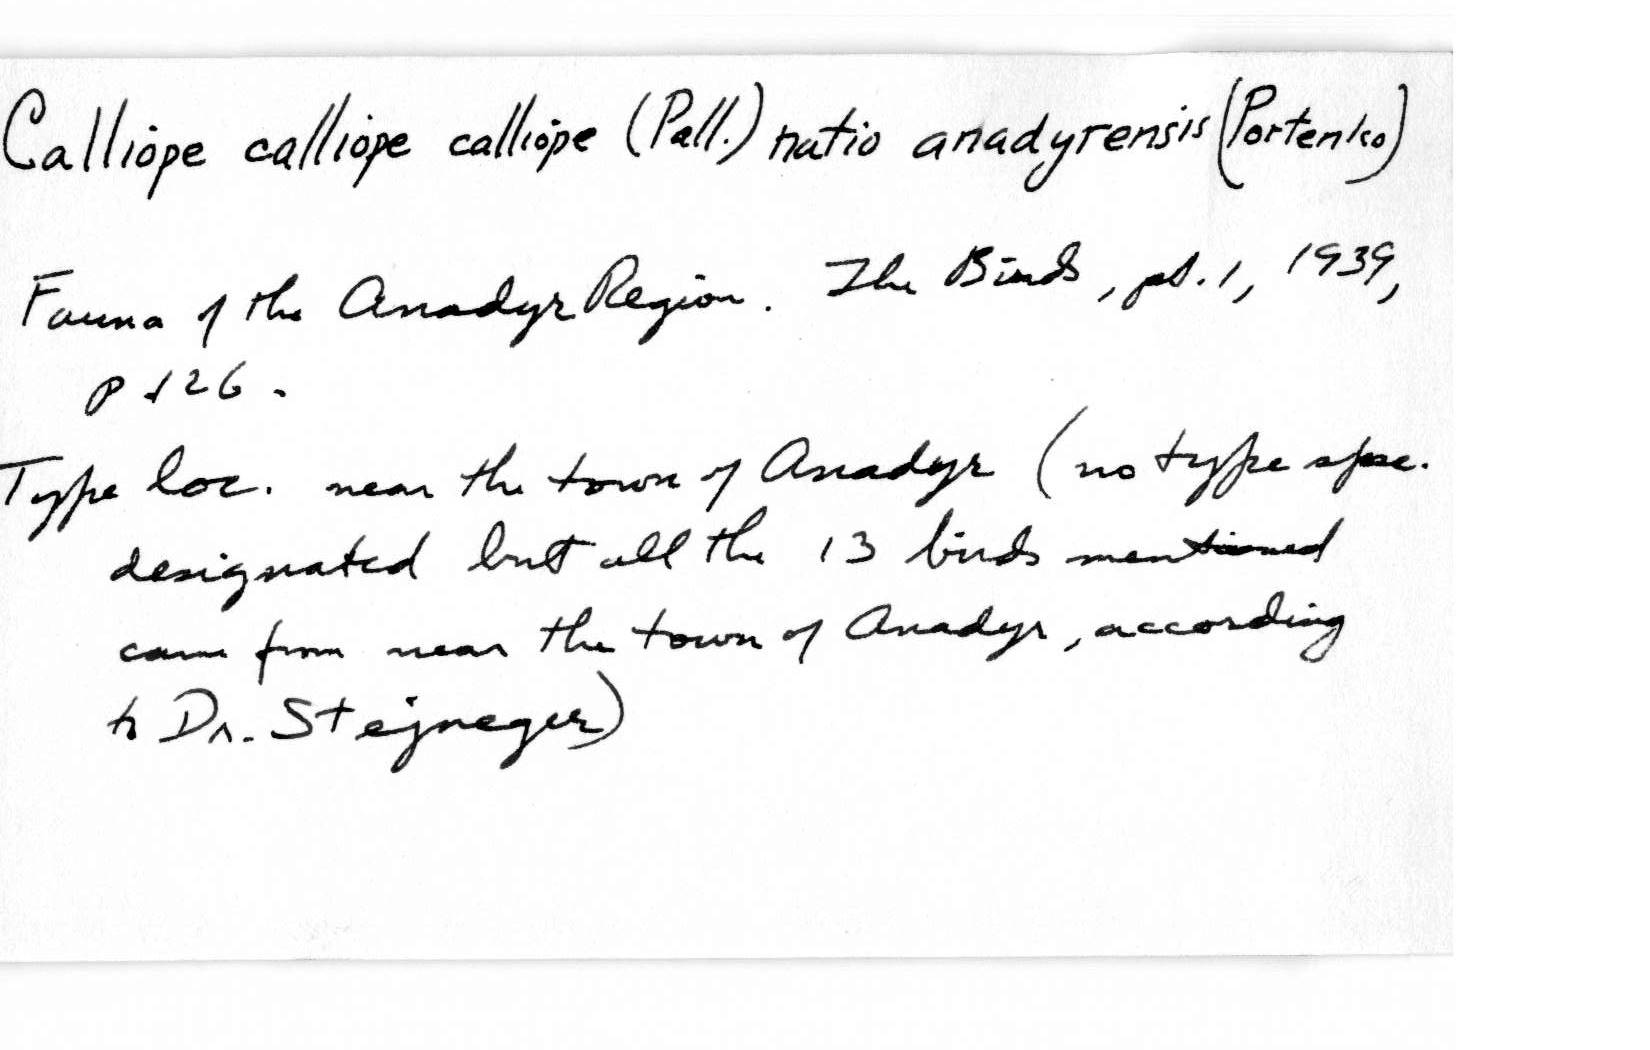 Calliope calliope calliope (Pall.) natio anadyrensis (Portenko)
Fauna of the Anadyr Region. The Birds, pt. 1, 1939,
p 126.
Type loc. near the town of Anadyr (no type spec.
designated but all the 13 birds mentioned
came from near the town of Anadyr, according
to Dr. Stejneger)